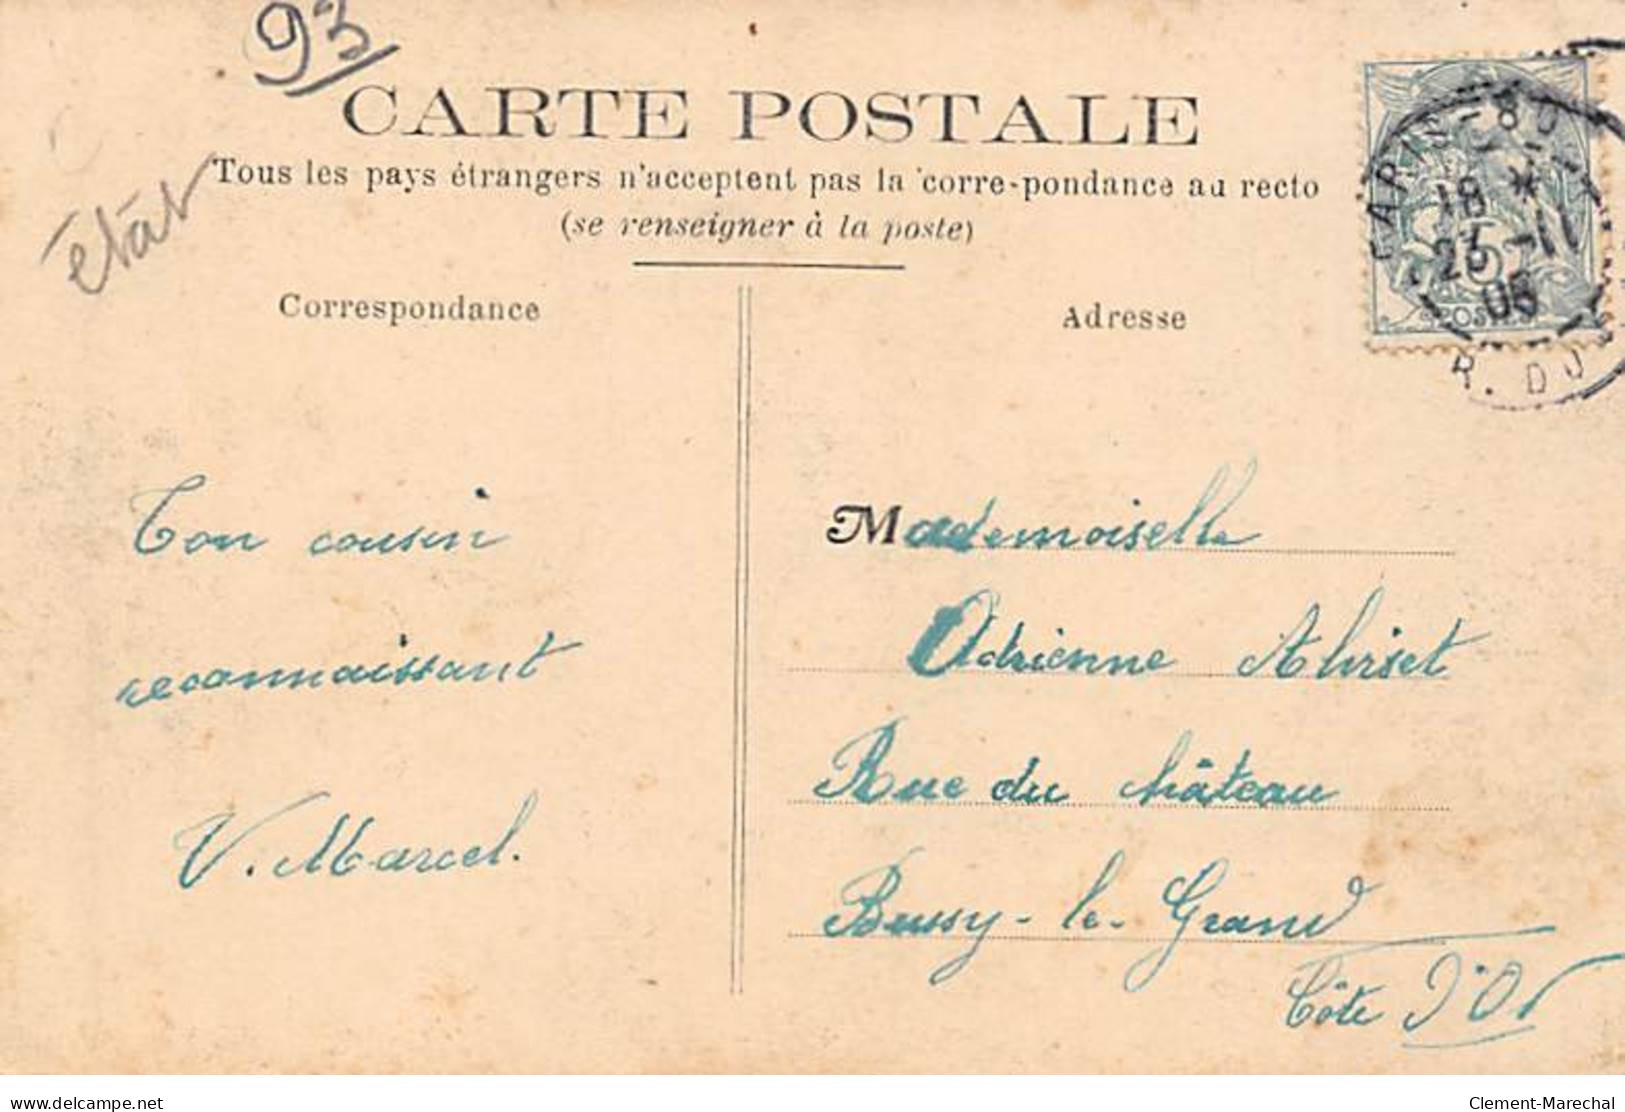 93
CARTE POSTALE
état
Tous les pays étrangers n'acceptent pas la corre-pondance au recto
(se renseigner à la poste)
Correspondance
Adresse
PARIS-80
18 *
23-11
05
R. DU
5
POSTES
Ton cousin
reconnaissant
V. Marcel.
Mademoiselle
Adrienne
Rue du château
Bussy-le-Grand
Côte d'Or
delcampe.net
Clement-Marechal